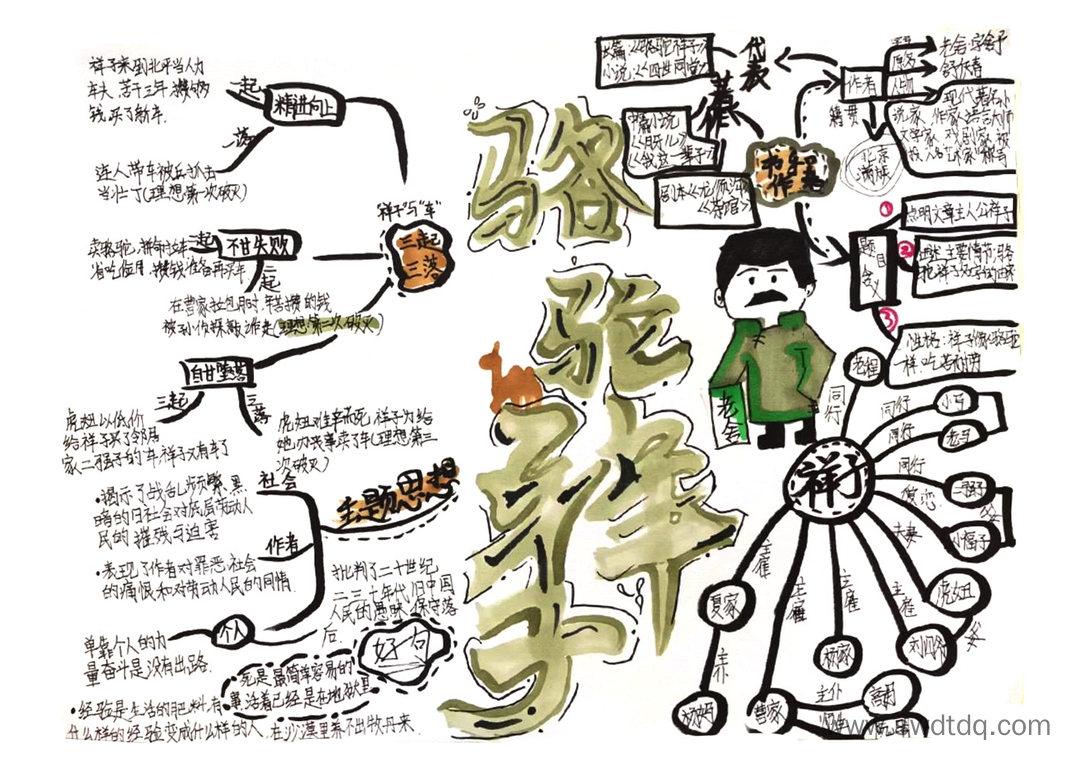 骆驼祥子
祥子与"车"
三起
三落
精进向上
一起
祥子来到北平当人力
车夫,苦干三年,攒够
钱,买了新车.
一落
连人带车被兵抓去
当壮丁(理想第一次破灭)
不甘失败
二起
卖骆驼,拼命拉车
省吃俭用,攒钱准备再买车
二落
在曹家拉包月时,辛苦攒的钱
被孙侦探敲诈走(理想第二次破灭)
自甘堕落
三起
虎妞以低价
给祥子买了邻居
家二强子的车,祥子又有车了
三落
虎妞难产而死,祥子为给
她办丧事卖了车(理想第三
次破灭)
主题思想
社会
·揭示了战乱频繁、黑
暗的旧社会对底层劳动人
民的摧残与迫害
作者
·表现了作者对罪恶社会
的痛恨和对劳动人民的同情
批判了二十世纪
二三十年代旧中国
人民的愚昧、保守落
后.
个人
单靠个人的力
量奋斗是没有出路.
好句
死是最简单容易的
事,活着已经是在地狱里
·经验是生活的肥料,有
什么样的经验变成什么样的人,在沙漠里养不出牡丹来.
书名
作者
代表
著作
长篇:《骆驼祥子》
小说:《四世同堂》
中篇小说
《月牙儿》
《我这一辈子》
剧本《龙须沟》
《茶馆》
作者
原名
老舍,字舍予
舒庆春
籍贯
北京
满族
现代著名小
说家、作家、语言大师
文学家、戏剧家,被
"人民艺术家"称号
题目含义
①
点明文章主人公祥子
②
主要情节:骆
③
性格:祥子像骆驼
样,吃苦耐劳
老舍
祥子
同行
老程
同行
小马
同行
老马
同行
二强子
恋
小福子
夫妻
虎妞
主雇
刘四爷
父女
主雇
杨家
主雇
曹家
主雇
夏家
主仆
杨妈
主仆
高妈
www.wdtdq.com